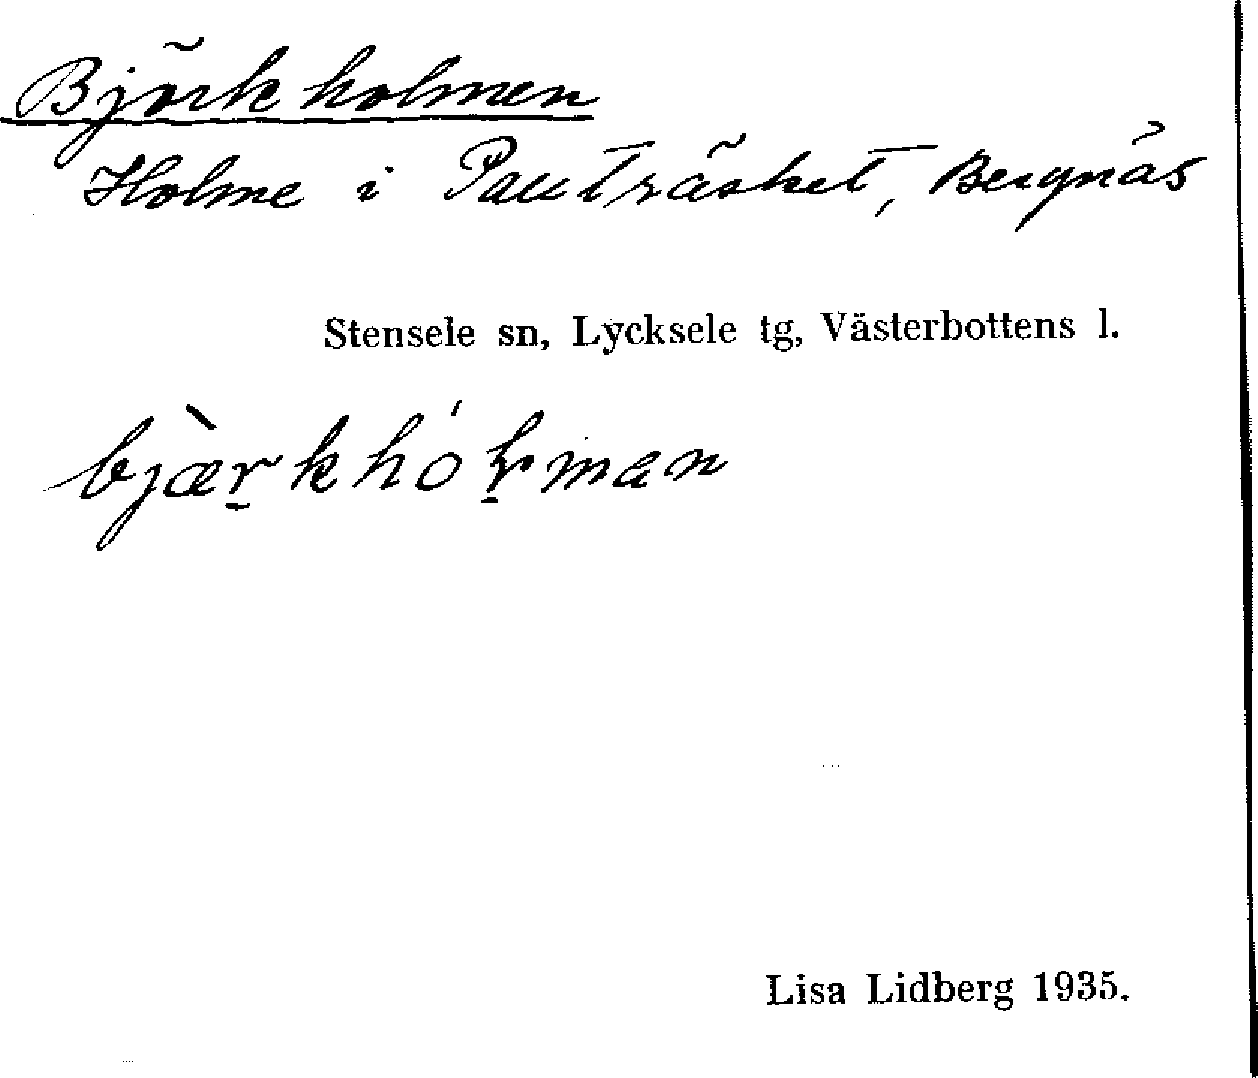 Björkholmen
Holme i Pauträsket, Bergnäs
Stensele sn, Lycksele tg, Västerbottens l.
bjæ̀r̠khóḻman
Lisa Lidberg 1935.